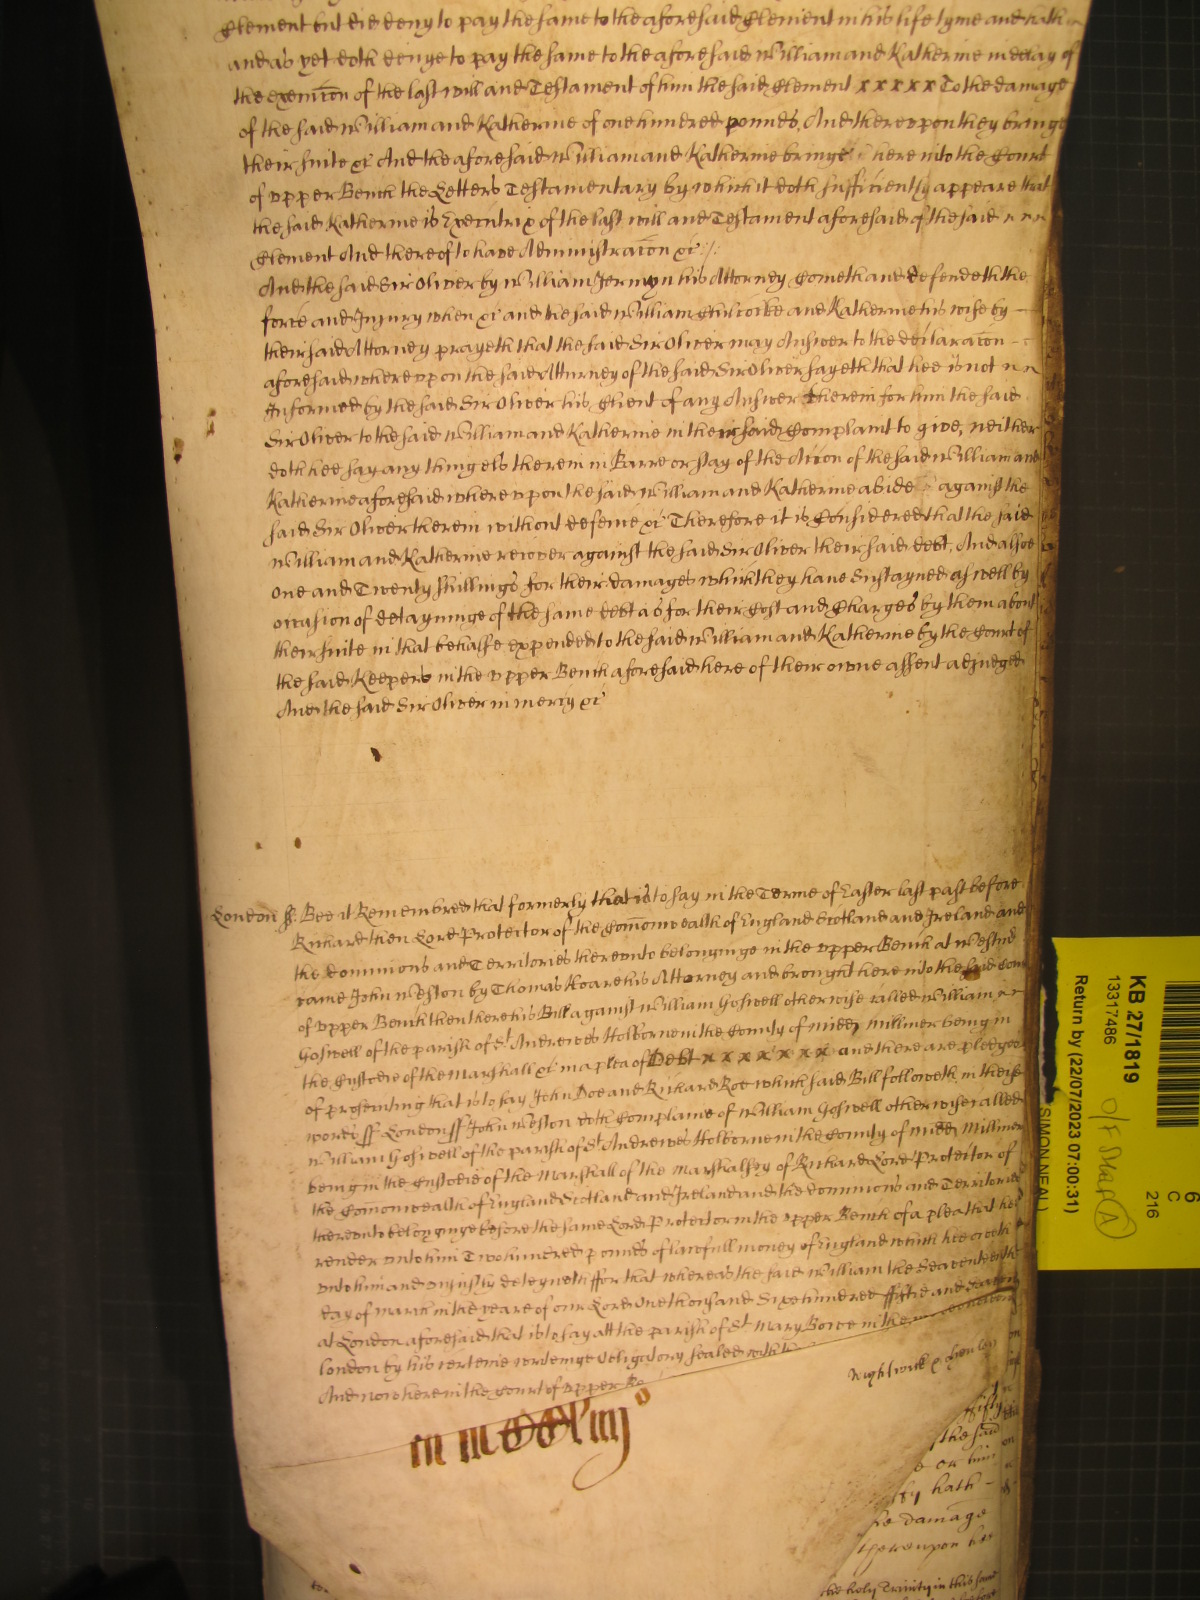 Clement but did deny to pay the same to the aforesaid Clement in his life tyme and hath
and as yet doth denye to pay the same to the aforesaid William and Katherine in delay of
the execucon of the last will and Testament of him the said Clement x x x x x To the damage
of the said William and Katherine of one hundred pounds, And thereupon they bringe
their suite &c And the aforesaid William and Katherine bringe here into the Court
of Upper Bench the Letters Testamentary by which it doth sufficiently appeare that
the said Katherine is Executrix of the last will and Testament aforesaid of the said
Clement And thereof to have Administracon &c
And the said Sir Oliver by William Jermyn his Attorney Cometh and defendeth the
force and Injury when &c and the said William and Katherine his wife by
their said Attorney prayeth that the said Sir Oliver may Answer to the declaracon
aforesaid whereupon the said Atturney of the said Sir Oliver sayeth that hee is not
Informed by the said Sir Oliver his Client of any Answer therein for him the said
Sir Oliver to the said William and Katherine in their said Complaint to give, neither
doth hee say any thing els therein in Barre or stay of the Accon of the said William and
Katherine aforesaid whereupon the said William and Katherine abide against the
said Sir Oliver therein without defence &c Therefore it is Considered that the said
William and Katherine recover against the said Sir Oliver their said debt, And alsoe
one and Twenty shillings for their damages which they have Sustayned as well by
occasion of detayninge of the same debt as for their Cost and Charges by them about
their suite in that behalfe expended to the said William and Katherine by the Court of
the said Keepers in the Upper Bench aforesaid here of their owne assent adjudged
And the said Sir Oliver in mercy &c
London ss. Bee it Remembred that formerly that is to say in the Terme of Easter last past before
Richard then Lord Protector of the Comonwealth of England Scotland and Ireland and
the dominions and Territories thereunto belonginge in the Upper Bench at Westmr
came John Weston by Thomas Hoare his Attorney and brought here into the said Court
of Upper Bench then there his Bill against William Goswell otherwise called William
Goswell of the parish of St. Andrewes Holborne in the County of Midd Milliner being in
the Custodie of the Marshall &c in a plea of Debt x x x x x x x and there are pledges
of prosecuting that is to say John Doe and Richard Roe which said Bill followeth in theise
words ss London ss John Weston doth Complaine of William Goswell otherwise called
William Goswell of the parish of St. Andrewes Holborne in the County of Midd Milliner
being in the Custodie of the Marshall of the Marshalsey of Richard Lord Protector of
the Comonwealth of England Scotland and Ireland and the dominions and Territories
thereunto belonginge before the same Lord Protector in the Upper Bench of a plea that hee
render unto him Two hundred pounds of lawfull money of England which hee oweth
unto him and unjustly deteyneth ffor that whereas the said William the Seaventeenth
day of March in the yeare of our Lord One thousand Six hundred fiftie and
at London aforesaid that is to say att the parish of St Mary Bowe in the
London by his certeine writeinge Obligatory sealed with
And now here in the Court of Upper Be
fifty
the said
or him
hath
damage
thereupon hee
the holy Trinity in this same
KB 27/1819
13317486
Return by (22/07/2023 07:00:31)
SIMON NEAL
O/F Staff A
6
C
216